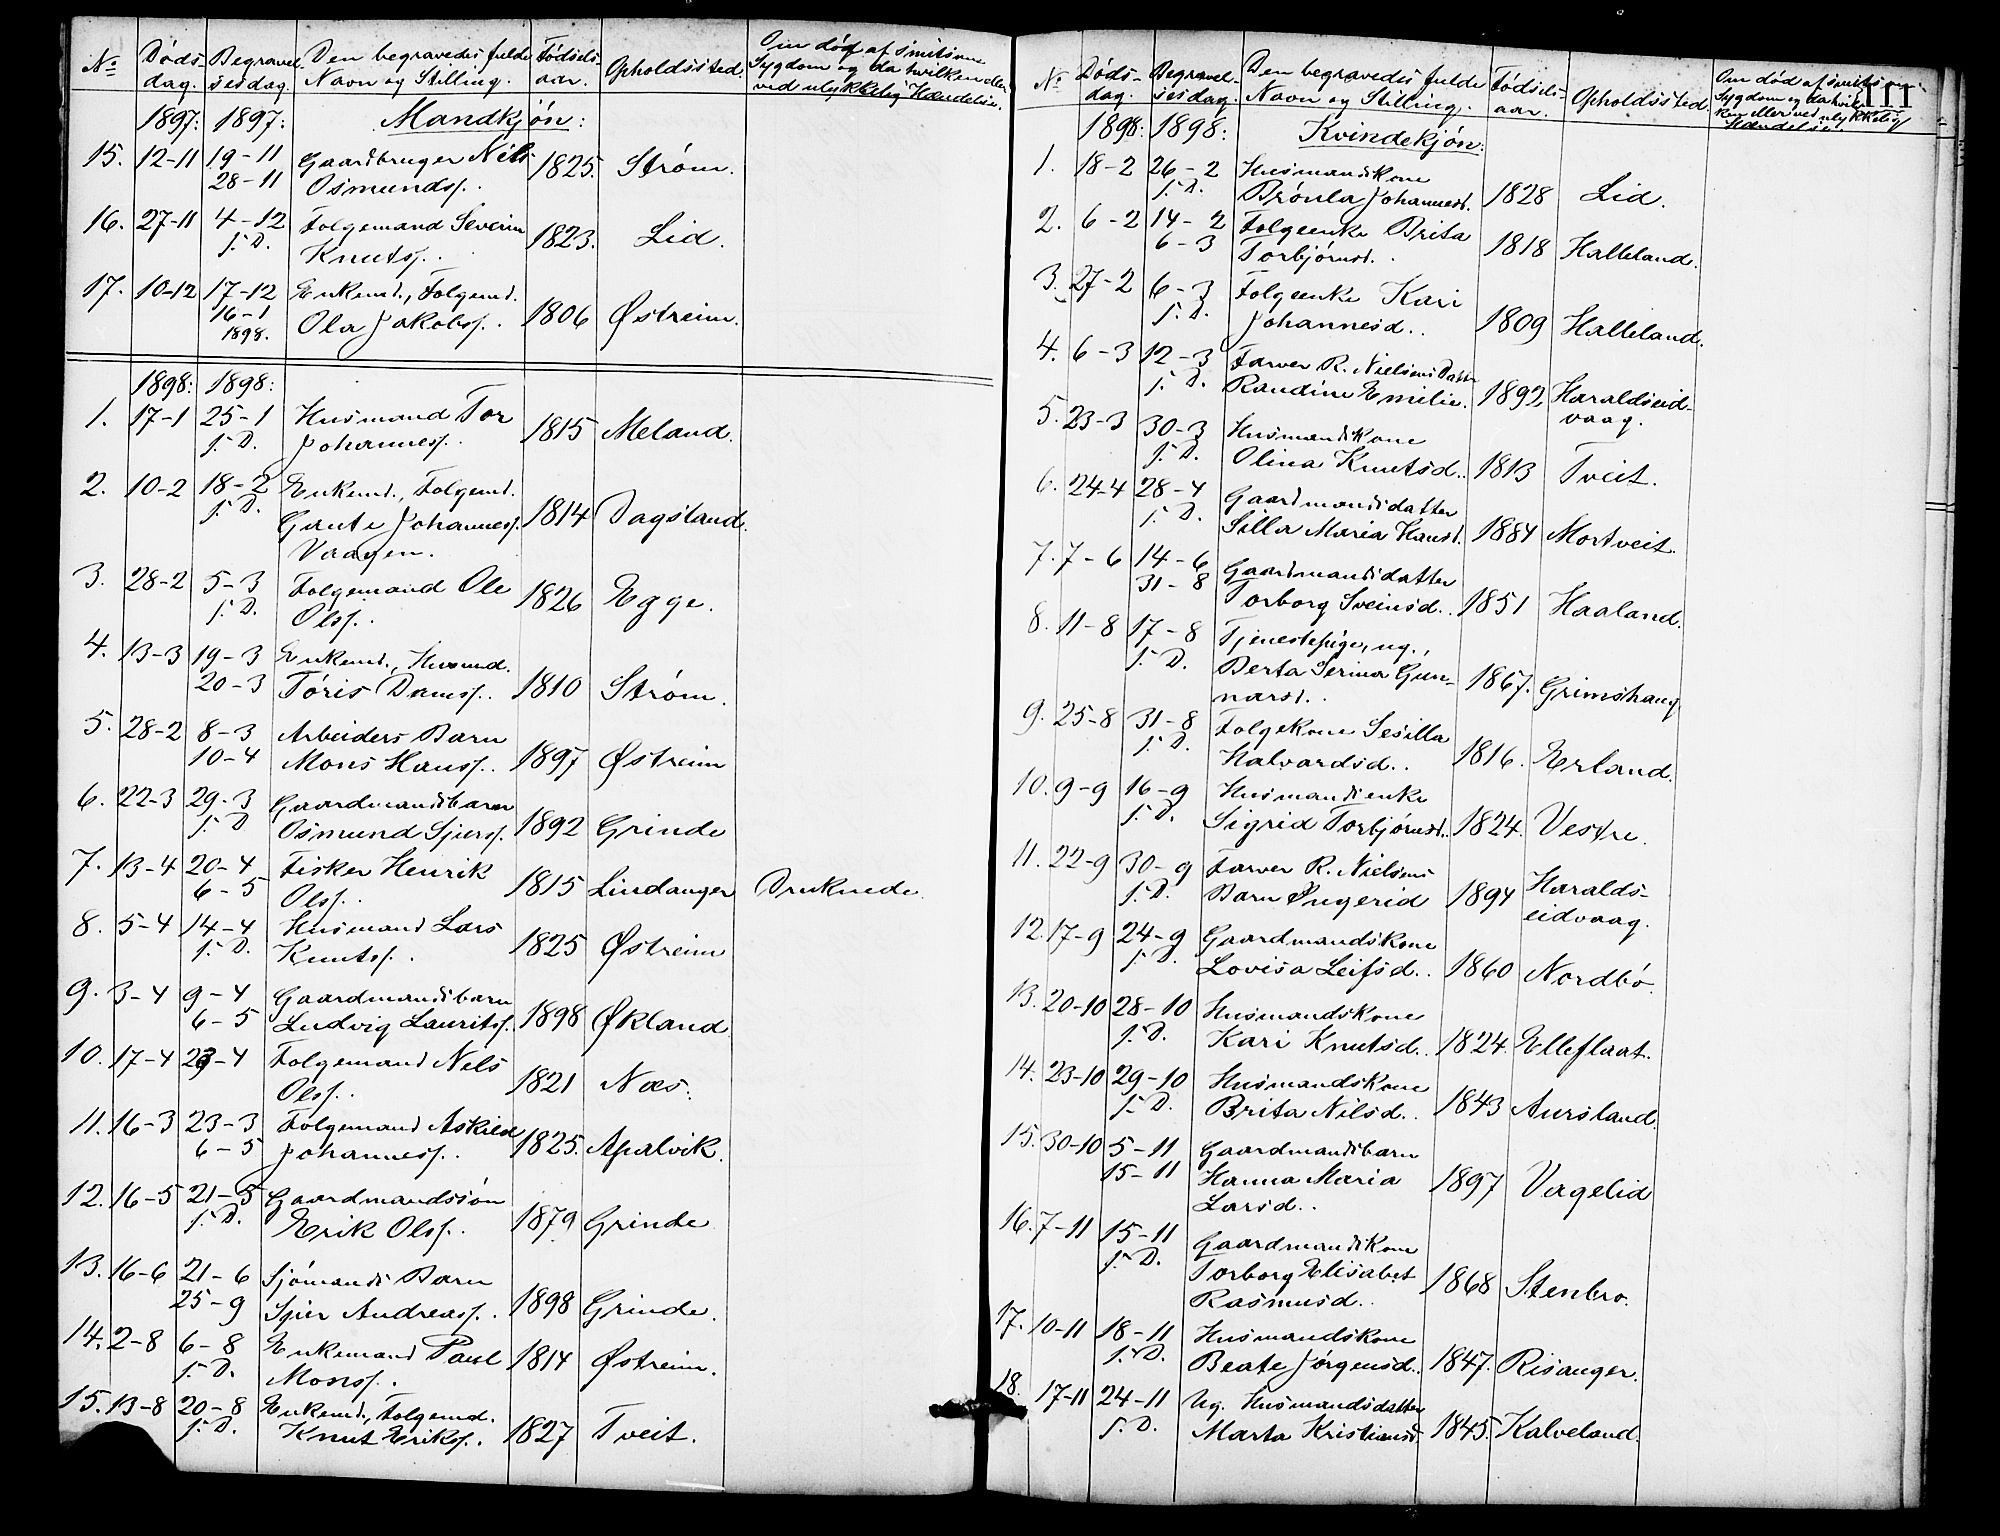 № Døds- dag. Begravel- sesdag. Den begravedes fulde Navn og Stilling. Fødsels- aar. Opholdssted. Om død af smitsom Sygdom og da hvilken eller ved ulykkelig Hændelse.
1897: 1897: Mandkjön:
15. 12-11 19-11 Gaardbruger Nils 1825. Strøm.
28-11 Osmunds.
16. 27-11 4-12 Folgemand Severin 1823. Lid.
s. D. Knuts.
17. 10-12 17-12 Enkemd., Folgemd. 1806 Østreim.
16-1 Ola Jakobs.
1898.
1898: 1898:
1. 17-1 25-1 Husmand Tor 1815 Meland.
s. D. Johannes.
2. 10-2 18-2 Enkemd., Folgemd.
s. D. Gaute Johannes. 1814 Dagsland.
Vaagen.
3. 28-2 5-3 Folgemand Ole 1826 Egge.
s. D. Ols.
4. 13-3 19-3 Enkemd., Husmd.
20-3 Tøris Dams. 1810 Strøm.
5. 28-2 8-3 Arbeiders Barn
10-4 Mons Hans. 1897 Østreim
6. 22-3 29-3 Gaardmandsbarn
s. D Osmund Sjurs. 1892 Grinde
7. 13-4 20-4 Fisker Henrik 1815 Lindanger Druknede.
6-5 Ols.
8. 5-4 14-4 Husmand Lars 1825 Østreim
s. D. Knuts.
9. 3-4 9-4 Gaardmandsbarn
6-5 Ludvig Laurits. 1898 Økland
10. 17-4 23-4 Folgemand Nils 1821 Næs.
Ols.
11. 16-3 23-3 Folgemand Askild
6-5 Johannes. 1825. Apalvik.
12. 16-5 21-5 Gaardmandssøn
s. D. Erik Ols. 1879 Grinde
13. 16-6 21-6 Sjömands Barn
25-9 Sjur Andreas. 1898 Grinde.
14. 2-8 6-8 Enkemand Paul 1814 Østreim.
s. D. Mons.
15. 13-8 20-8 Enkemd., Folgemd.
s. D. Knut Eriks. 1827 Tveit.
№ Døds- dag. Begravel- sesdag. Den begravedes fulde Navn og Stilling. Fødsels- aar. Opholdssted. Om død af smitsom Sygdom og da hvil- ken eller ved ulykkelig Hændelse.
1898: 1898: Kvindekjön:
1. 18-2 26-2 Husmandskone
s. D. Brønla Johannesd. 1828 Lid.
2. 6-2 14-2 Folgeenke Brita 1818 Halleland.
6-3 Torbjörnsd.
3. 27-2 6-3 Folgeenke Kari
s. D. Johannesd. 1809 Halleland.
4. 6-3 12-3 Farver R. Nielsens Datter
s. D. Randine Emilie. 1892 Haraldseid-
vaag.
5. 23-3 30-3 Husmandskone
s. D. Olina Knutsd. 1813 Tveit.
6. 24-4 28-4 Gaardmandsdatter
s. D. Silla Maria Hansd. 1884 Mortveit.
7. 7-6 14-6 Gaardmandsdatter
31-8 Torborg Sveinsd. 1851 Haaland.
8. 11-8 17-8 Tjenestepige, ug.,
s. D. Berta Serina Gun- 1867. Grimshaug
narsd.
9. 25-8 31-8 Folgekone Sesilla
s. D. Halvardsd. 1816. Erland.
10. 9-9 16-9 Husmandsenke
s. D. Sigrid Torbjörnsd. 1824. Vestre.
11. 22-9 30-9 Farver R. Nielsens Haralds-
s. D. Barn Ingerid 1894 eidvaag.
12. 17-9 24-9 Gaardmandskone
s. D. Lovisa Leifsd. 1860 Nordbö.
13. 20-10 28-10 Husmandskone
s. D. Kari Knutsd. 1824. Elleflaat.
14. 23-10 29-10 Husmandskone
s. D. Brita Nilsd. 1843 Aursland.
15. 30-10 5-11 Gaardmandsbarn
15-11 Hanna Maria 1897 Vagelid
Larsd.
16. 7-11 15-11 Gaardmandskone
s. D. Torborg Elisabet 1868 Stenbro.
Rasmusd.
17. 10-11 18-11 Husmandskone
s. D. Beate Jörgensd. 1847. Risanger.
18. 17-11 24-11 Ug. Husmandsdatter
s. D. Marta Kristiansd. 1845. Kalveland.